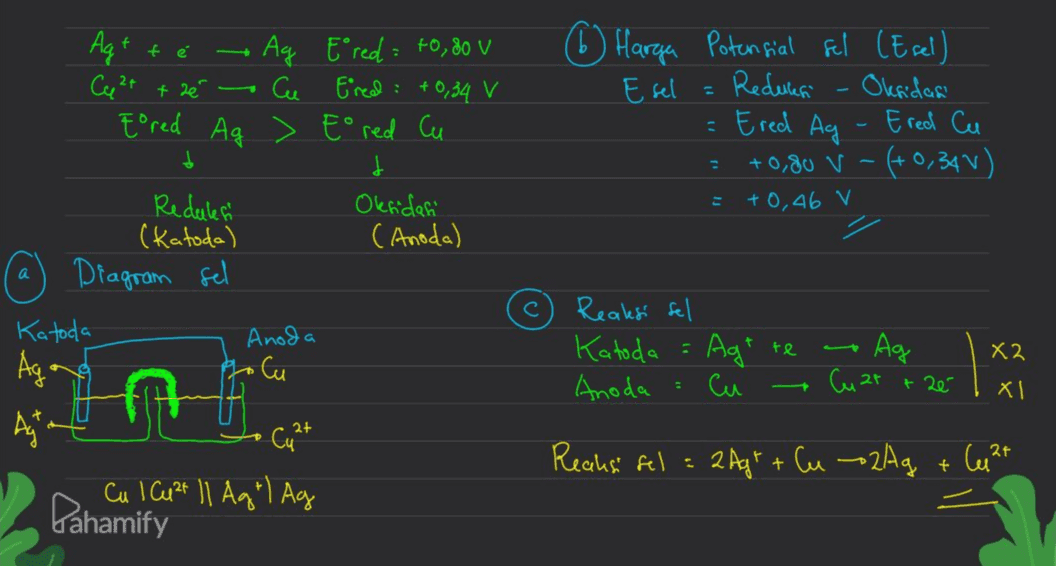 Ag⁺ + e⁻ → Ag E°red = +0,80 V
Cu²⁺ + 2e⁻ → Cu E°red = +0,34 V
E°red Ag > E°red Cu
↓ ↓
Reduksi Oksidasi
(Katoda) (Anoda)
a Diagram sel
Katoda Anoda
Ag Cu
Ag⁺ Cu²⁺
Cu | Cu²⁺ || Ag⁺ | Ag
Pahamify
b Harga Potensial sel (Esel)
E sel = Reduksi - Oksidasi
= Ered Ag - Ered Cu
= +0,80 V - (+0,34 V)
= +0,46 V
c Reaksi sel
Katoda = Ag⁺ + e → Ag x2
Anoda = Cu → Cu²⁺ + 2e⁻ x1
Reaksi sel = 2Ag⁺ + Cu → 2Ag + Cu²⁺